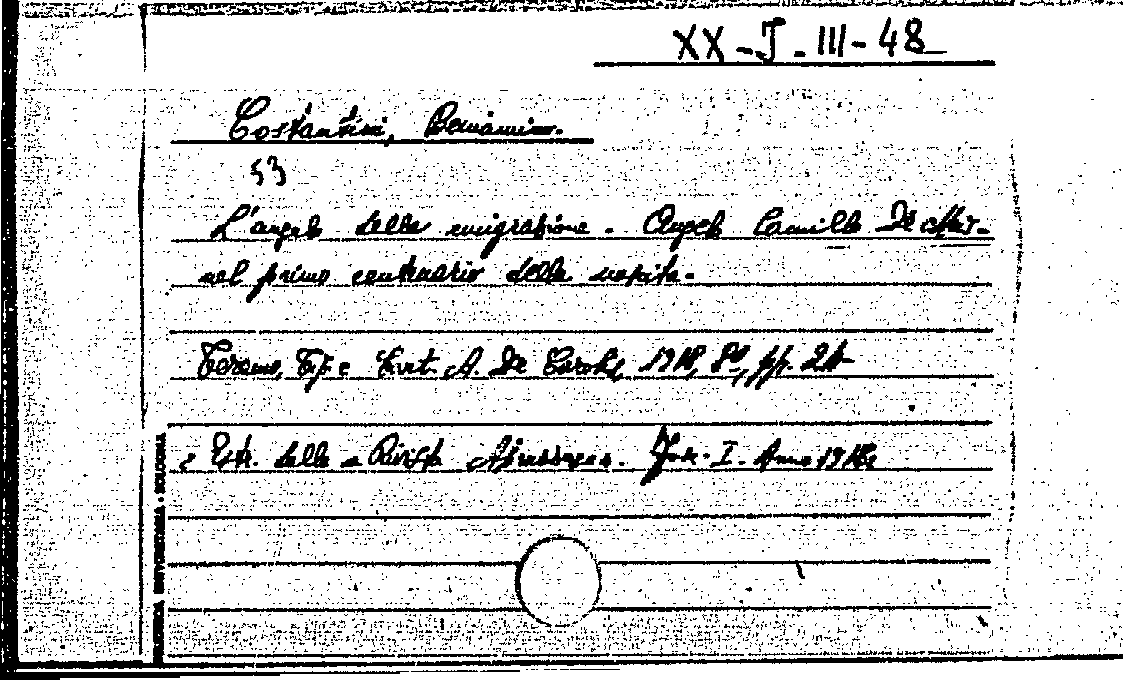 XX-J-III-48
Costantini, Beniamino.
53
L'angelo della emigrazione. Angelo Camillo De
nel primo centenario della nascita.
Teramo, Tip e A. De Carolis, 8º, pp.
Estr. dalla Rivista Abruzzese. I. Anno
BOLOGNA